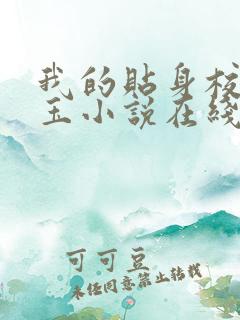 我的贴身校
玉小说在线
可可豆
未经同意禁止转载